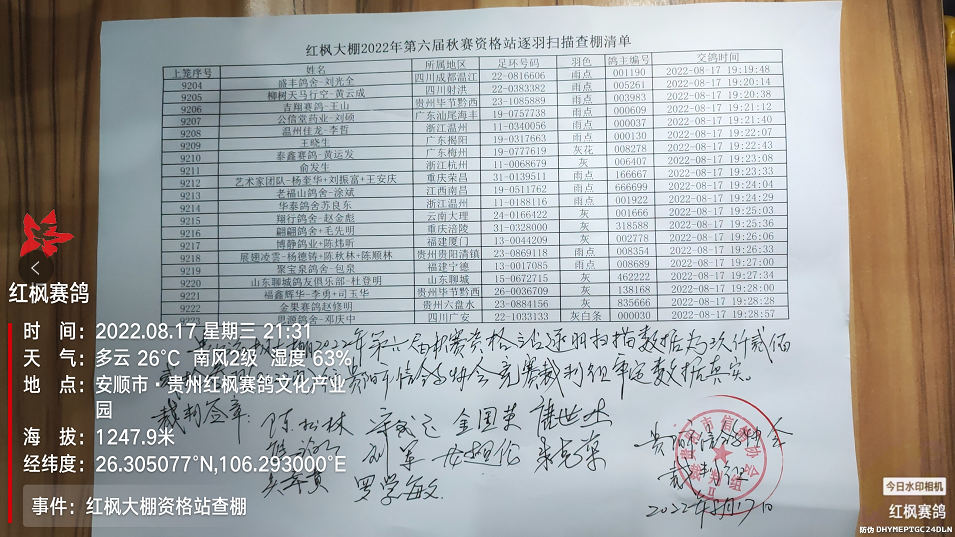 红枫大棚2022年第六届秋赛资格站逐羽扫描查棚清单
上笼序号 姓名 所属地区 足环号码 羽色 鸽主编号 交鸽时间
9204 盛丰鸽舍-刘光全 四川成都温江 22-0816606 雨点 001190 2022-08-17 19:19:48
9205 柳树天马行空-黄云成 四川射洪 22-0383382 雨点 005261 2022-08-17 19:20:14
9206 吉翔赛鸽-王山 贵州毕节黔西 23-1085889 雨点 003983 2022-08-17 19:20:38
9207 公信堂药业-刘硕 广东汕尾海丰 19-0757738 雨点 000609 2022-08-17 19:21:12
9208 温州佳龙-李哲 浙江温州 11-0340056 雨点 000037 2022-08-17 19:21:40
9209 王晓生 广东揭阳 19-0317663 雨点 000130 2022-08-17 19:22:07
9210 泰鑫赛鸽-黄运发 广东梅州 19-0777619 灰花 008278 2022-08-17 19:22:43
9211 俞发生 浙江杭州 11-0068679 灰 006407 2022-08-17 19:23:08
9212 艺术家团队-杨奎华+刘振富+王安庆 重庆荣昌 31-0139511 雨点 166667 2022-08-17 19:23:33
9213 老福山鸽舍-涂斌 江西南昌 19-0511762 雨点 666699 2022-08-17 19:24:04
9214 华泰鸽舍苏良东 浙江温州 11-0188116 雨点 001922 2022-08-17 19:24:29
9215 翔行鸽舍-赵金彪 云南大理 24-0166422 灰 001666 2022-08-17 19:25:03
9216 翩翩鸽舍+毛先明 重庆涪陵 31-0328000 灰 318588 2022-08-17 19:25:36
9217 博静鸽业+陈炜昕 福建厦门 13-0044209 灰 002778 2022-08-17 19:26:06
9218 展翅凌雲-杨德铸+陈秋林+陈顺林 贵州贵阳清镇 23-0869118 雨点 008354 2022-08-17 19:26:33
9219 聚宝泉鸽舍-包泉 福建宁德 13-0017085 雨点 008689 2022-08-17 19:27:00
9220 山东聊城鸽友俱乐部-杜登明 山东聊城 15-0672715 灰 462222 2022-08-17 19:27:34
9221 福鑫辉华-李勇+司玉华 贵州毕节黔西 26-0036709 灰 138168 2022-08-17 19:28:00
9222 金果赛鸽赵修明 贵州六盘水 23-0884156 灰 835666 2022-08-17 19:28:28
9223 思源鸽舍-邓庆中 四川广安 22-1033133 灰白条 000030 2022-08-17 19:28:57
大棚2022年第六届秋赛资格站逐羽扫描数据为玖仟贰佰
贵阳市信鸽协会竞赛裁判组审定数据真实。
裁判签章: 陈松林 金国英
刘军
罗学敏
贵阳市信鸽协会
裁判组
2022年8月17日
红枫赛鸽
时 间: 2022.08.17 星期三 21:31
天 气: 多云 26°C 南风2级 湿度 63%
地 点: 安顺市·贵州红枫赛鸽文化产业
园
海 拔: 1247.9米
经纬度: 26.305077°N,106.293000°E
事件: 红枫大棚资格站查棚
今日水印相机
红枫赛鸽
防伪 DHYMEPTGC24DLN